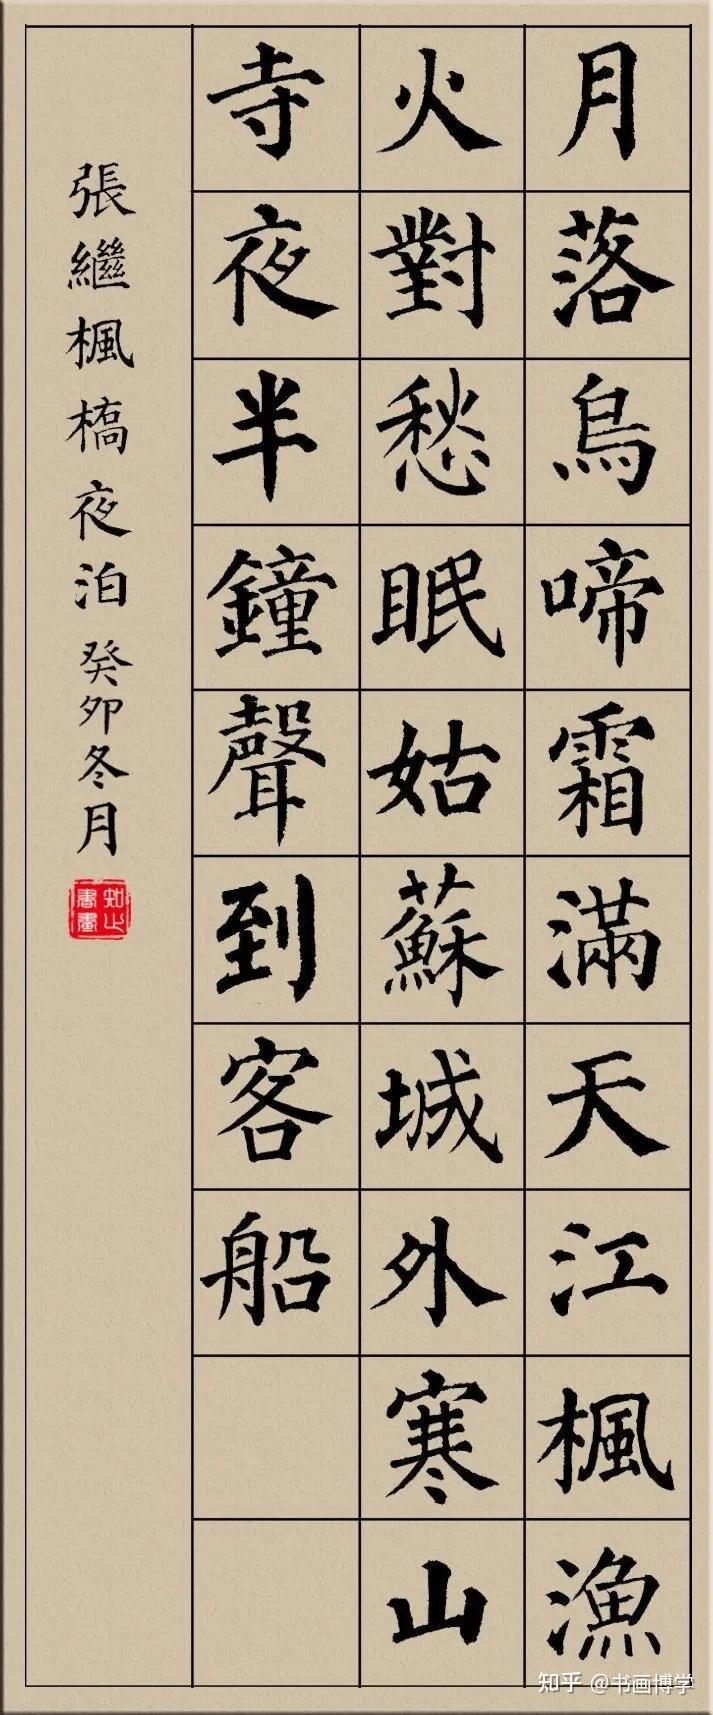 月落烏啼霜滿天江楓漁
火對愁眠姑蘇城外寒山
寺夜半鐘聲到客船
張繼楓橋夜泊 癸卯冬月
知止書畫
知乎 @书画博学